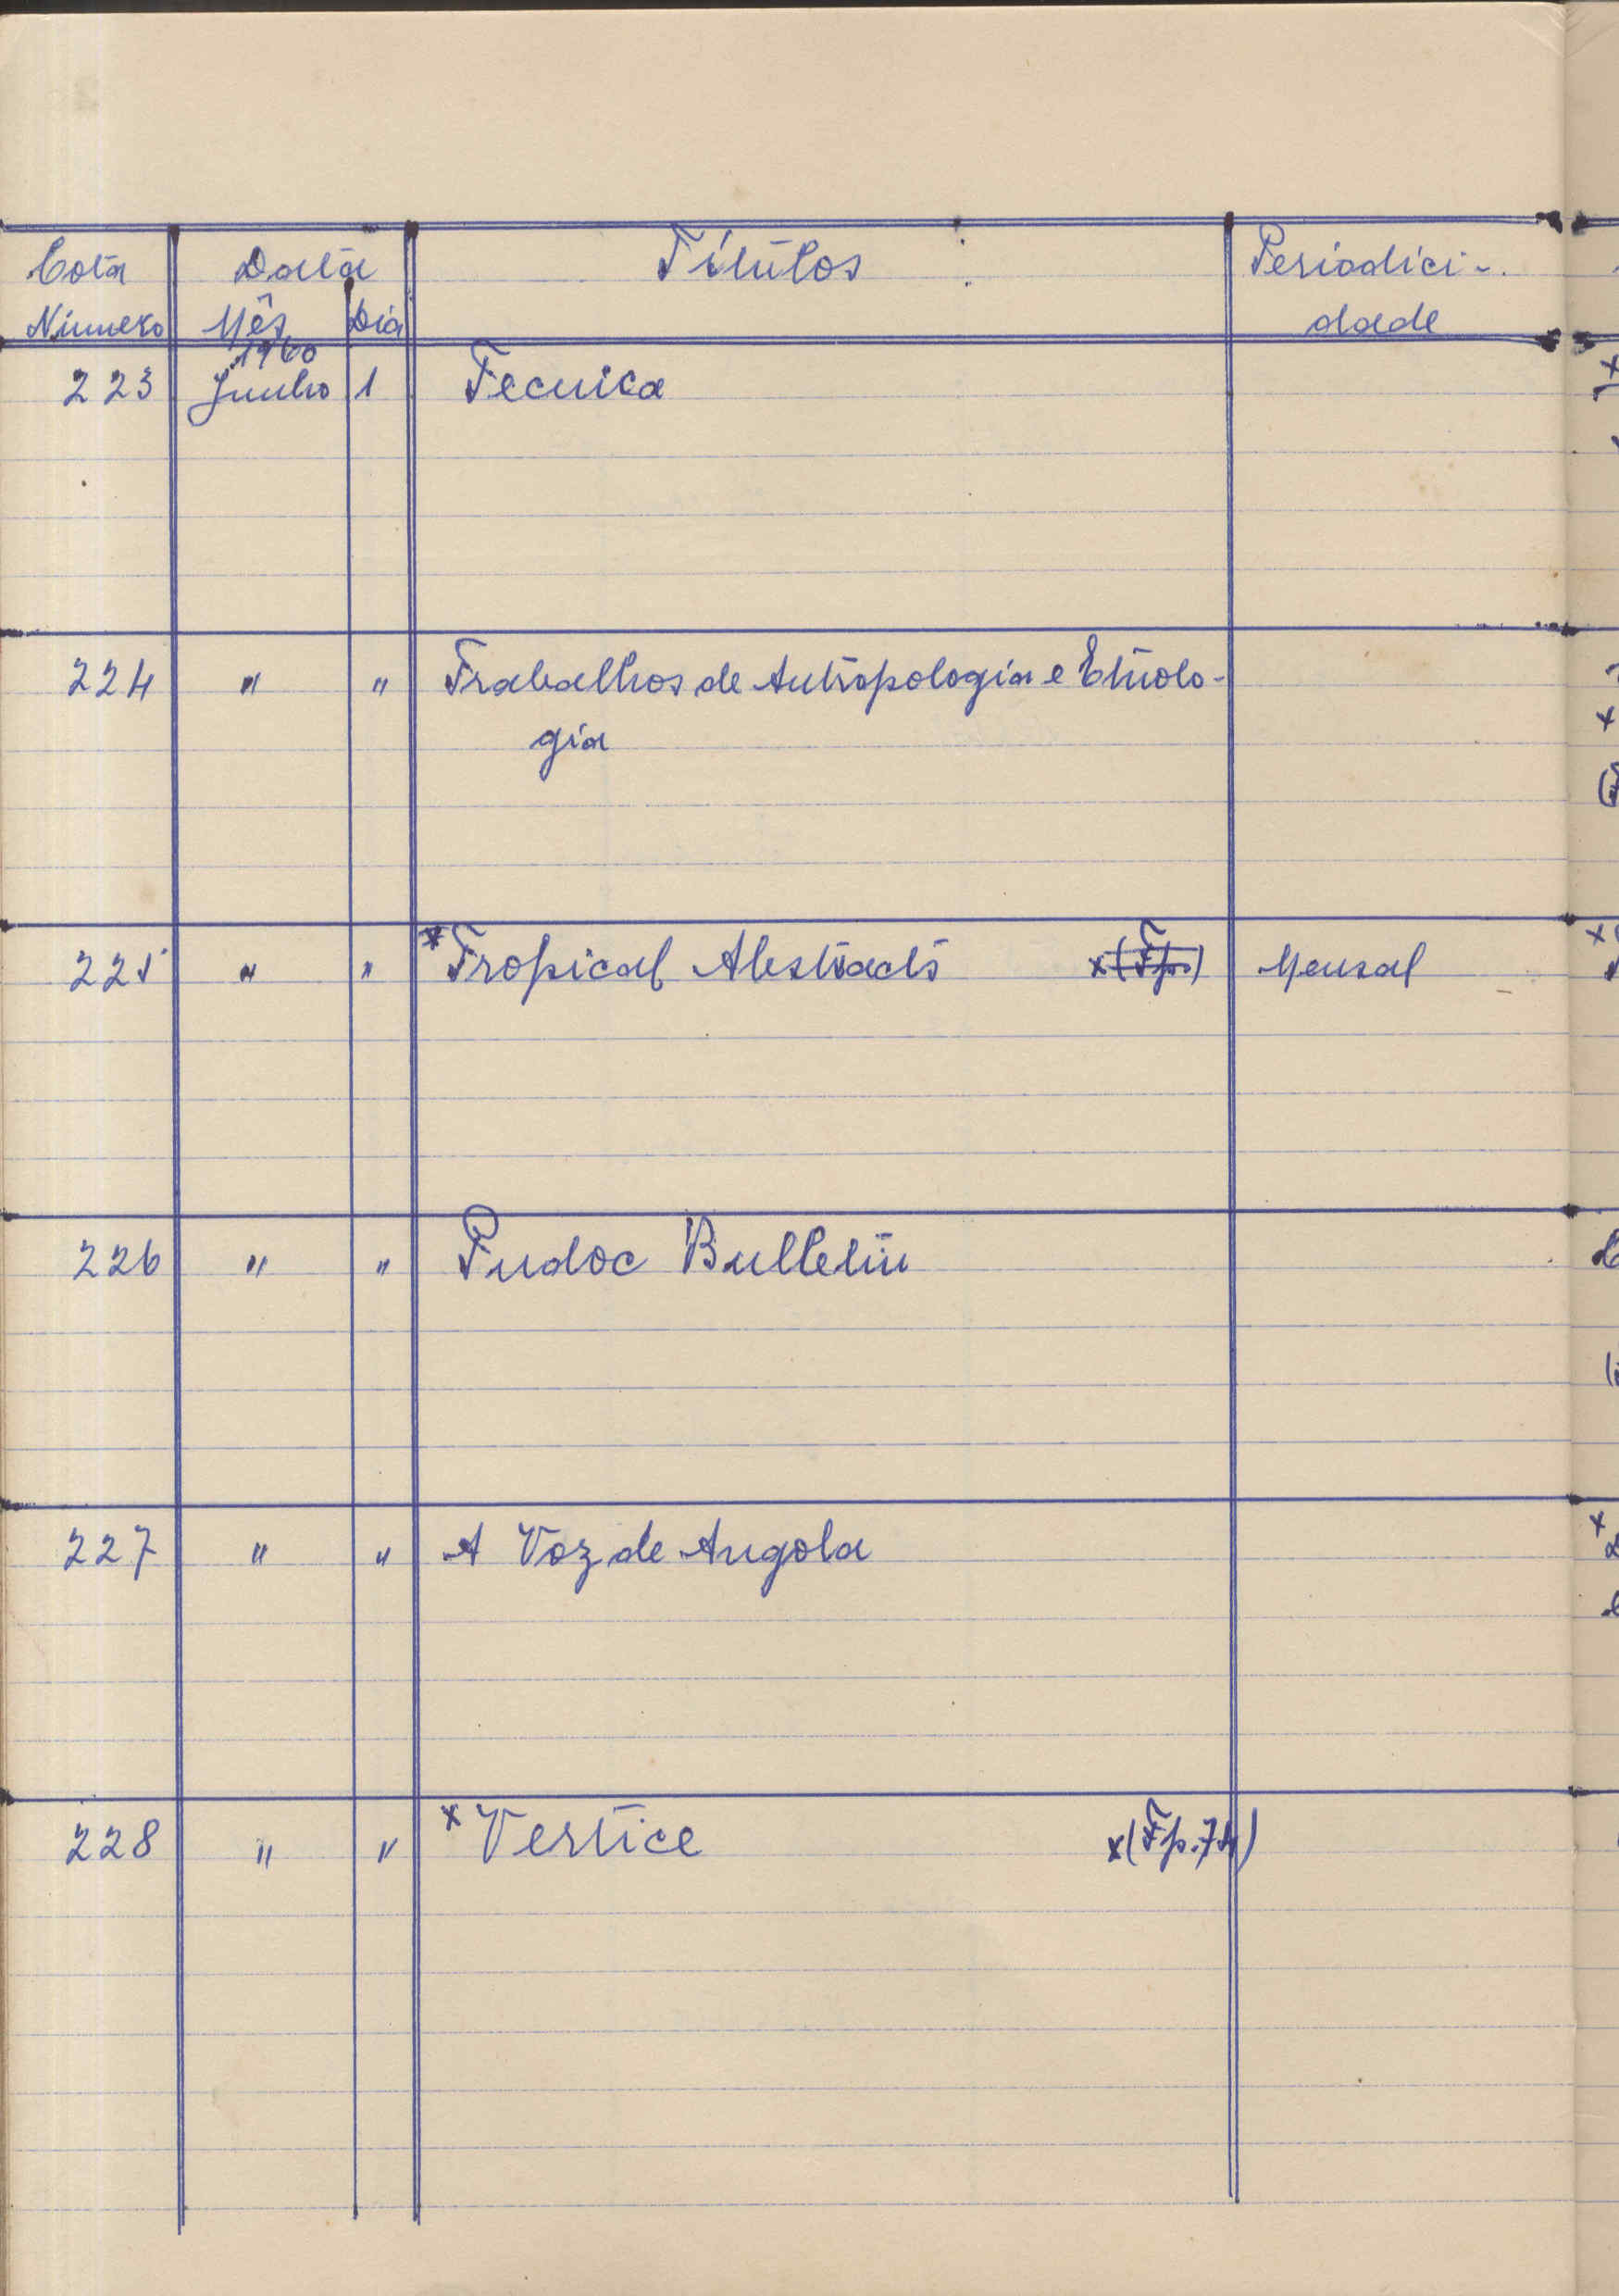 Cota Data Títulos Periodici-
Número Mês Dia dade
1960
223 Junho 1 Tecnica
224 " " Trabalhos de Antropologia e Etnolo-
gia
225 " " *Tropical Abstracts x(Fp.) Mensal
226 " " Pudoc Bulletin
227 " " A Voz de Angola
228 " " x Vertice x(Fp.74)